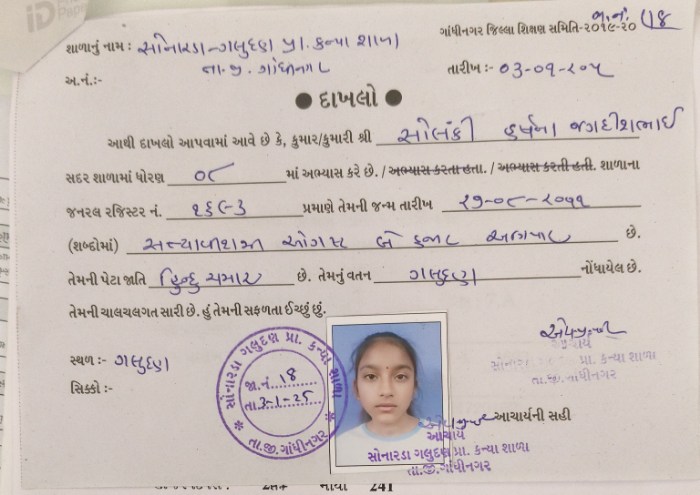 જા.નં. 18
ગાંધીનગર જિલ્લા શિક્ષણ સમિતિ-૨૦૧૯-૨૦
શાળાનું નામ : સોનારડા-ગલુદણ પ્રા. કન્યા શાળા
તા.જી. ગાંધીનગર
અ.નં.:-
તારીખ :- ૦૩-૦૧-૨૦૨૫
● દાખલો ●
આથી દાખલો આપવામાં આવે છે કે, કુમાર/કુમારી શ્રી સોલંકી હર્ષના જગદીશભાઈ
સદર શાળામાં ધોરણ ૦૮ માં અભ્યાસ કરે છે. / અભ્યાસ કરતા હતા. / અભ્યાસ કરતી હતી. શાળાના
જનરલ રજિસ્ટર નં. ૨૬૯૩ પ્રમાણે તેમની જન્મ તારીખ ૨૭-૦૮-૨૦૧૧
(શબ્દોમાં) સત્યાવીસ ઓગસ્ટ બે હજાર અગિયાર છે.
તેમની પેટા જાતિ હિન્દુ ચમાર છે. તેમનું વતન ગલુદણ નોંધાયેલ છે.
તેમની ચાલચલગત સારી છે. હું તેમની સફળતા ઈચ્છું છું.
સ્થળ :- ગલુદણ
સિક્કો :-
સોનારડા ગલુદણ પ્રા. કન્યા શાળા
જા.નં. 18
તા. 3-1-25
તા.જી.ગાંધીનગર
આચાર્ય
સોનારડા ગલુદણ પ્રા. કન્યા શાળા
તા.જી.ગાંધીનગર
આચાર્યની સહી
આચાર્ય
સોનારડા ગલુદણ પ્રા. કન્યા શાળા
તા.જી.ગાંધીનગર
241